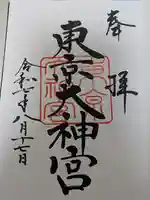 奉拝
東京大神宮
令和七年八月十七日